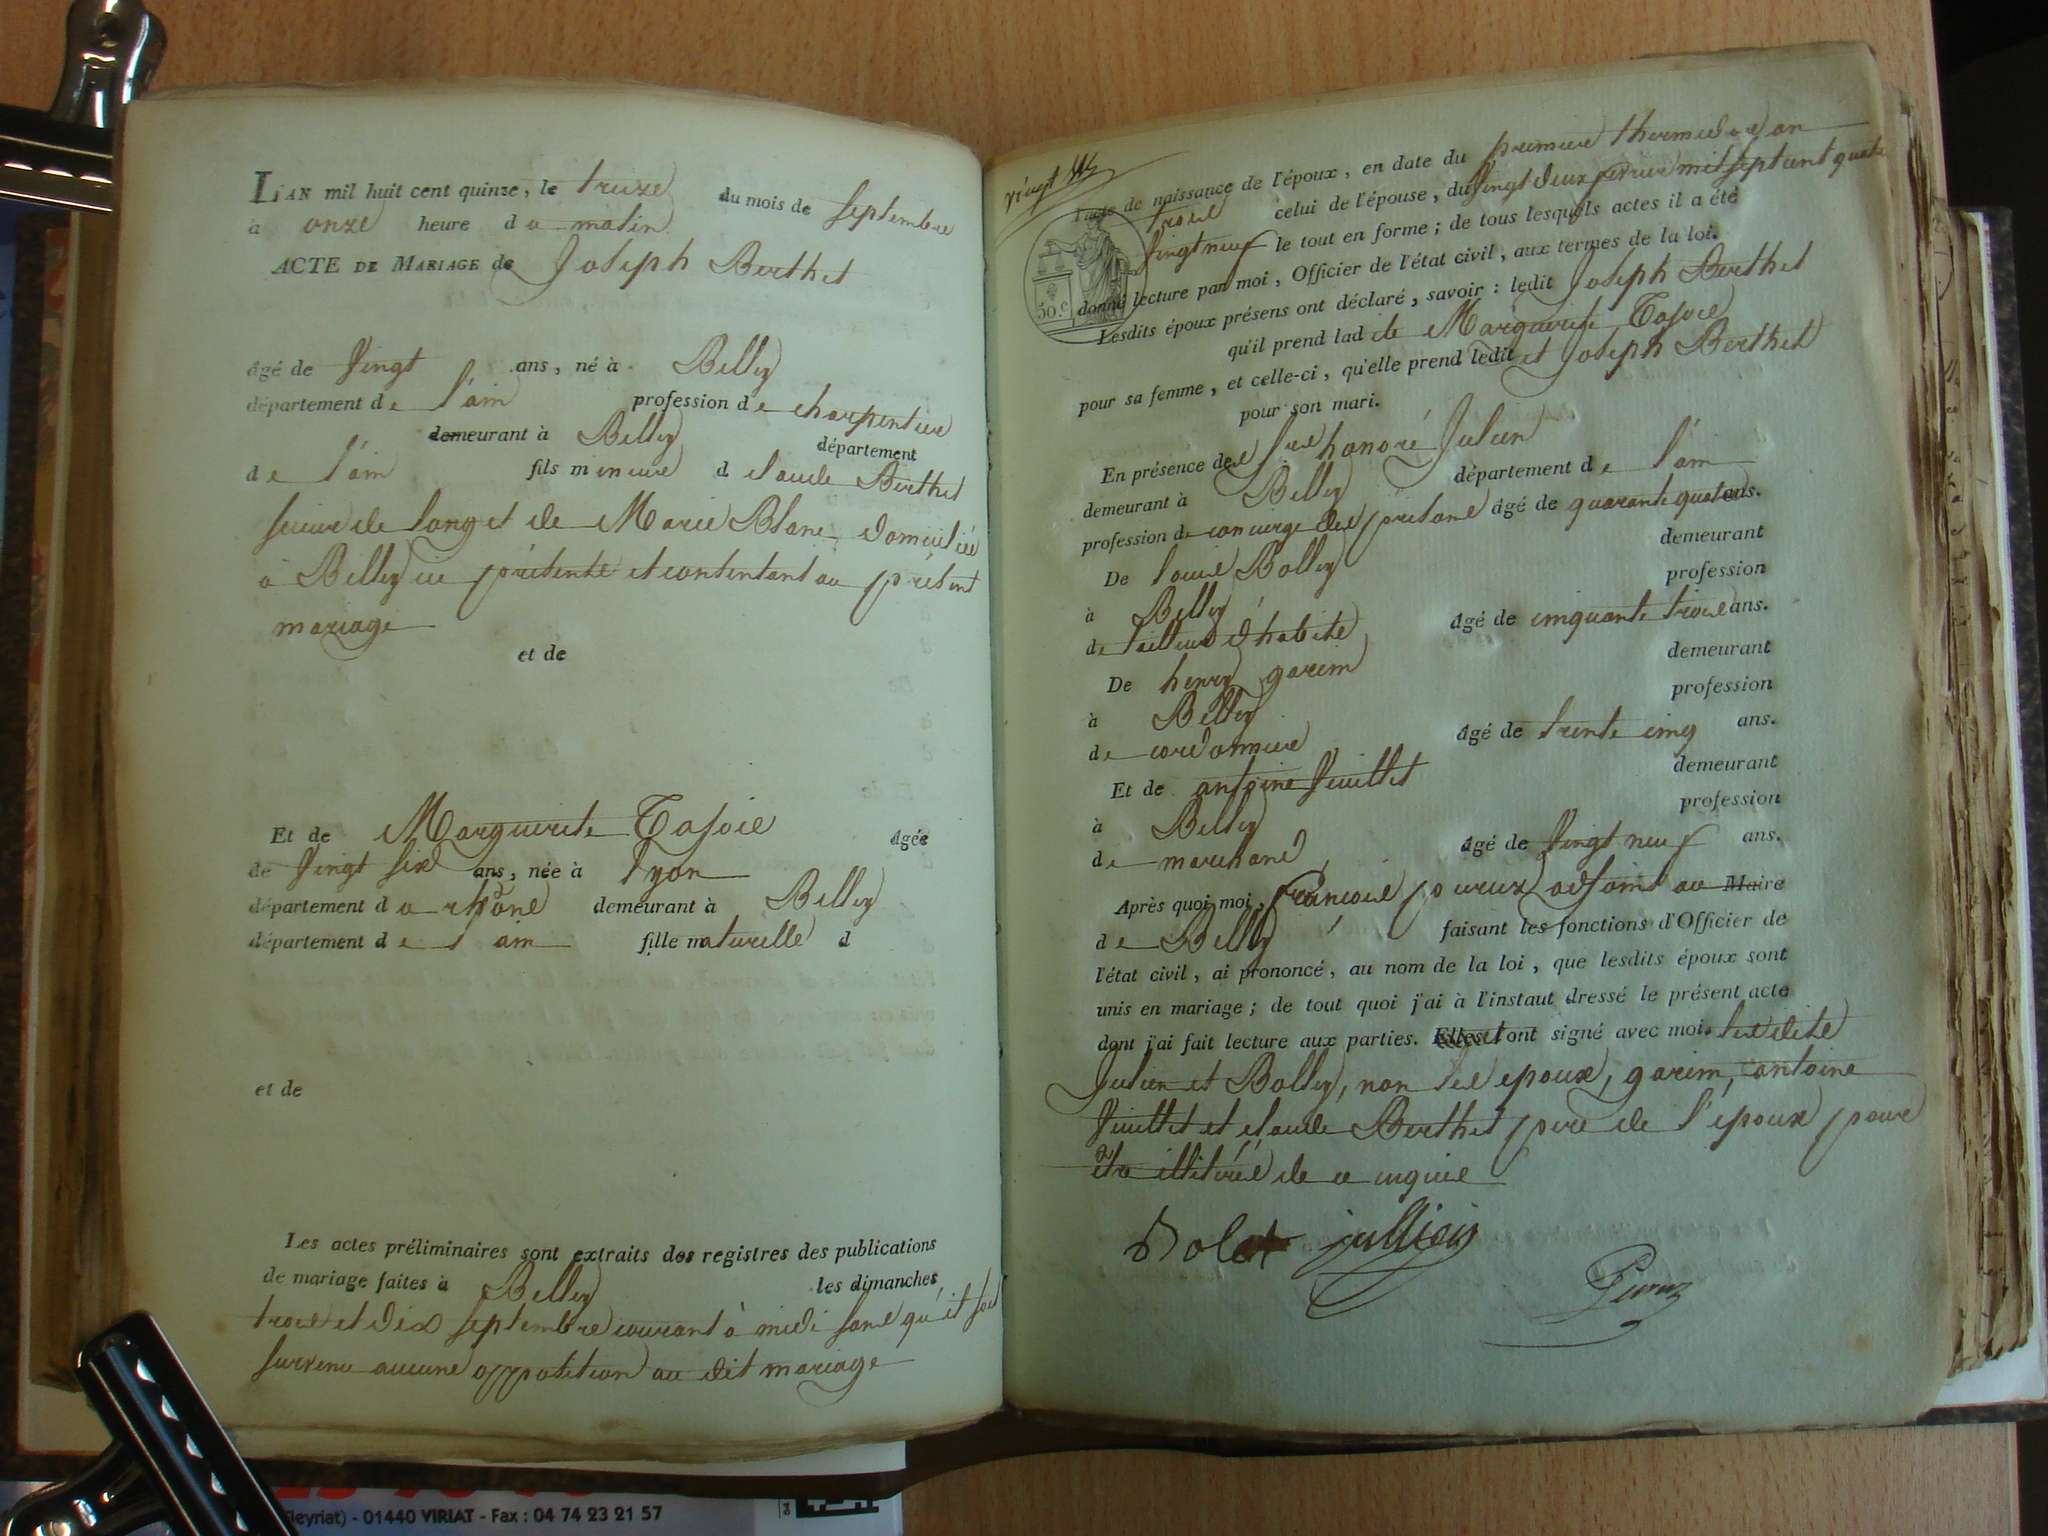 L'AN mil huit cent quinze, le treize du mois de septembre
à onze heure du matin
ACTE DE MARIAGE de Joseph Berthet
âgé de Vingt ans, né à Belley
département de l'ain profession de charpentier
demeurant à Belley département
de l'ain fils mineure d claude Berthet
scieur de long et de Marie Blanc domiciliés
à Belley ici présents et consentant au présent
mariage
et de
Et de Marguerite Cajoie âgée
de Vingt six ans, née à Lyon
département du rhône demeurant à Belley
département de l'ain fille naturelle d
et de
Les actes préliminaires sont extraits des registres des publications
de mariage faites à Belley les dimanches
trois et dix septembre courant à midi sans qu'il soit
survenu aucune opposition au dit mariage
vingt
l'acte de naissance de l'époux, en date du premier thermidor an
trois celui de l'épouse, du Vingt deux mil sept cent quatre
Vingt neuf le tout en forme; de tous lesquels actes il a été
donné lecture par moi, Officier de l'état civil, aux termes de la loi.
50.c
Lesdits époux présens ont déclaré, savoir: ledit Joseph Berthet
qu'il prend lad ite Marguerite Cajoie
pour sa femme, et celle-ci, qu'elle prend ledit Joseph Berthet
pour son mari.
En présence des Srs honoré Julien
demeurant à Belley département de l'ain
profession de concierge des prisons âgé de quarante quatre ans.
De Louis Bolley demeurant
à Belley profession
de tailleur d'habits âgé de cinquante trois ans.
De henry garin demeurant
à Belley profession
de cordonnier âgé de trente cinq ans.
Et de antoine Vuillet demeurant
à Belley profession
de marchand âgé de Vingt neuf ans.
Après quoi moi, francois peureux adjoint au Maire
de Belley faisant les fonctions d'Officier de
l'état civil, ai prononcé, au nom de la loi, que lesdits époux sont
unis en mariage; de tout quoi j'ai à l'instant dressé le présent acte
dont j'ai fait lecture aux parties. Elles ont signé avec moi. lesdits
Julien et Bolley, non les epoux, garin, antoine
Vuillet et claude Berthet pere de l'époux pour
être illitérés de ce enquis
Bolet jullien
Peureux
Fleyriat) - 01440 VIRIAT - Fax : 04 74 23 21 57